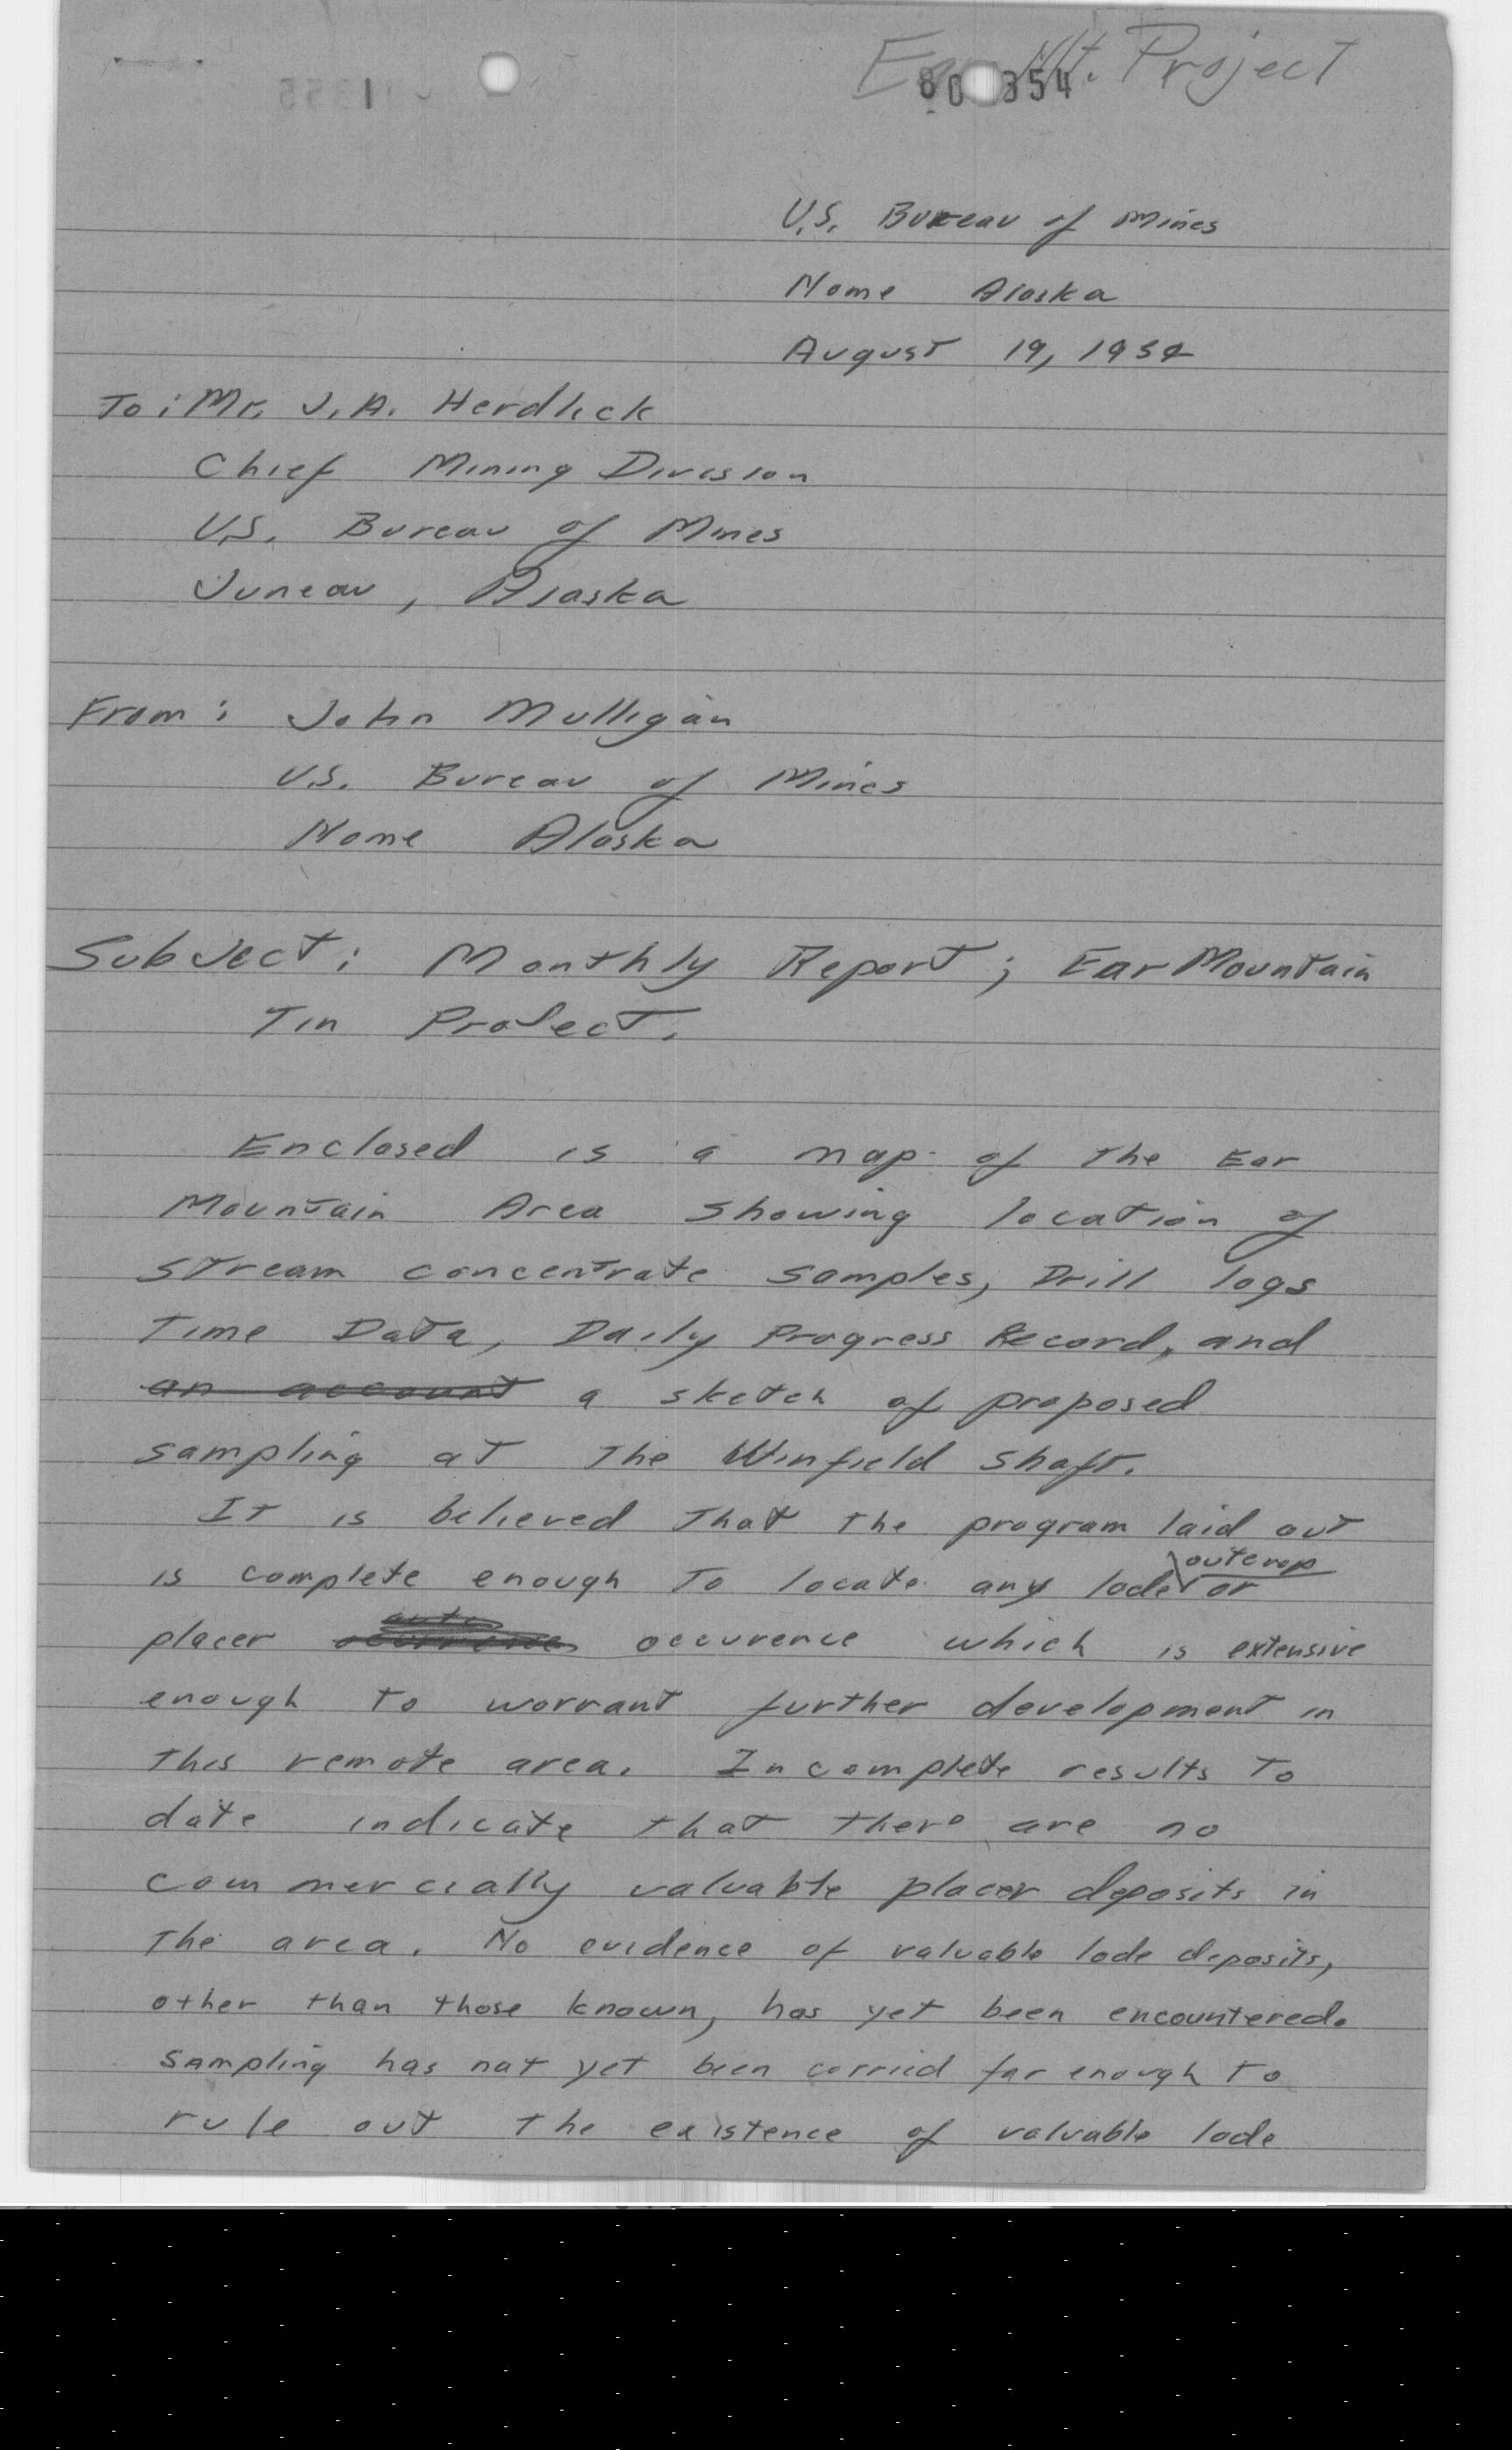 Ear Mt. Project
80 354
U.S. Bureau of Mines
Nome Alaska
August 19, 1952
To: Mr. J.A. Herdlick
Chief Mining Division
U.S. Bureau of Mines
Juneau, Alaska
From: John Mulligan
U.S. Bureau of Mines
Nome Alaska
Subject: Monthly Report; Ear Mountain
Tin Project.
Enclosed is a map of the Ear
Mountain Area showing location of
stream concentrate samples, Drill logs
Time Data, Daily Progress Record, and
an account a sketch of proposed
sampling at the Winfield shaft.
It is believed that the program laid out
outcrop
is complete enough to locate any lode or
placer occurence which is extensive
enough to warrant further development in
this remote area. Incomplete results to
date indicate that there are no
commercially valuable placer deposits in
the area. No evidence of valuable lode deposits,
other than those known, has yet been encountered.
Sampling has not yet been carried far enough to
rule out the existence of valuable lode